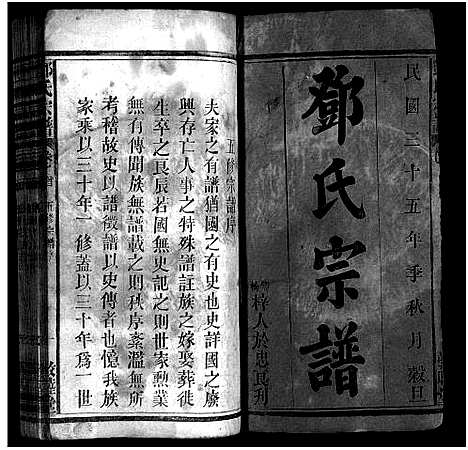 民國三十五年季秋月穀旦
鄧氏宗譜
梓人於忠良刊
五修宗譜序
夫家之有譜猶國之有史也史詳國之廢
興存亡人事之特殊譜註族之嫁娶葬徙
生卒之良辰若國無史記之則世家勲業
無有傳聞族無譜載之則秩序紊濫無所
考稽故史以譜徵譜以史傳者也憶我族
家乘以三十年一修蓋以三十年爲一世